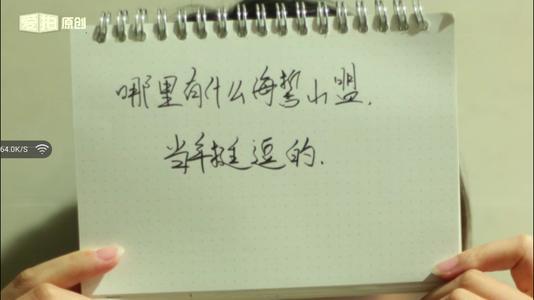 爱拍原创
哪里有什么海誓山盟.
当年挺逗的.
64.0K/S